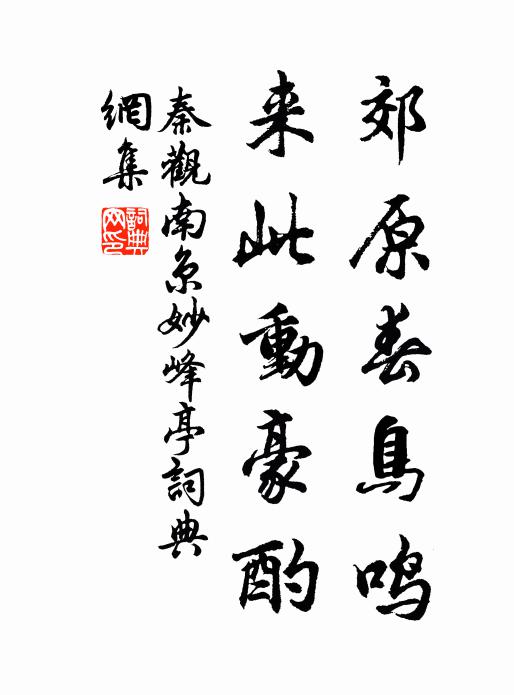 郊原春鳥鳴
来此動豪酌
秦觀南京妙峰亭詞典
網集
詞典网印